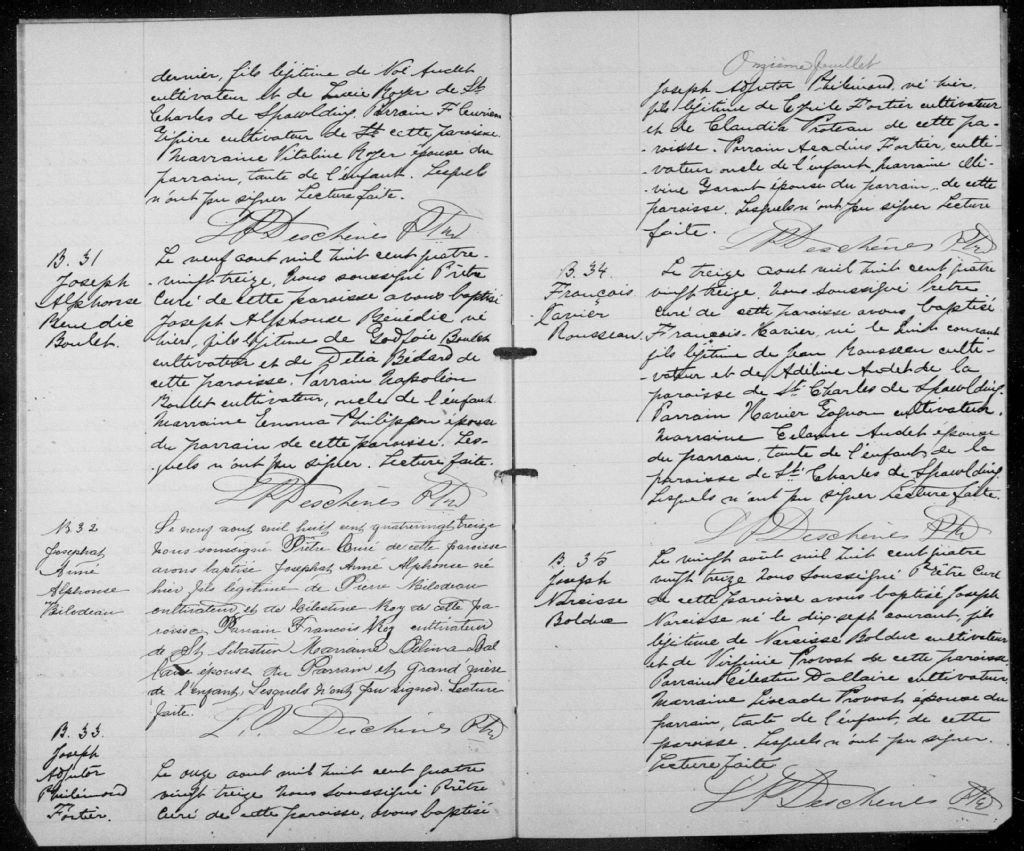 dernier, fils légitime de Noé Audet
cultivateur et de Lucie Royer de St
Charles de Spawlding. Parrain Fleurien
cultivateur de St cette paroisse.
Marraine Vitaline Royer épouse du
parrain, tante de l'enfant. Lesquels
n'ont pu signer Lecture faite.
L P Deschênes Ptre
B. 31
Joseph
Alphonse
Benedic
Boulet.
Le neuf aout mil huit cent quatre-
-vingt treize, Nous soussigné Prêtre
Curé de cette paroisse avons baptisé
Joseph Alphonse Bénédic né
hier, fils légitime de Godfroie Boulet
cultivateur et de Delia Bédard de
cette paroisse. Parrain Napoléon
Boulet cultivateur, oncle de l'enfant.
Marraine Emma Philippon épouse
du parrain de cette paroisse. Les-
-quels n'ont pu signer. Lecture faite.
L P Deschênes Ptre
B 32
Josephat
Aimé
Alphonse
Bilodeau
Le neuf aout mil huit cent quatrevingt treize
Nous soussigné Prêtre Curé de cette paroisse
avons baptisé Josephat Aimé Alphonse né
hier fils légitime de Pierre Bilodeau
cultivateur et de Célestine Roy de cette pa-
roisse Parrain François Roy cultivateur
de St Sébastien Marraine Délina Bal
laré épouse du Parrain et Grand mère
de l'enfant, Lesquels n'ont pu signer. Lecture
faite.
L. P. Deschênes Ptre
B. 33.
Joseph
Adjutor
Philémond
Fortier.
Le onze aout mil huit cent quatre
vingt treize Nous soussigné Prêtre
Curé de cette paroisse, avons baptisé
Onzième feuillet
Joseph Adjutor Philémond, né hier,
fils légitime de Cyrile Fortier cultivateur
et de Claudia Proteau de cette pa-
-roisse. Parrain Acadius Fortier, culti-
-vateur, oncle de l'enfant, Marraine Oli-
-vine Garant épouse du parrain, de cette
paroisse. Lesquels n'ont pu signer Lecture
faite.
L P Deschênes Ptre
B. 34.
François
Xavier
Rousseau.
Le treize aout mil huit cent quatre
vingt treize, Nous soussigné Prêtre
curé de cette paroisse avons baptisé
François-Xavier, né le huit courant
fils légitime de Jean Rousseau culti-
-vateur et de Adéline Audet de la
paroisse de St. Charles de Spawlding.
Parrain Xavier Gagnon cultivateur.
Marraine Audet épouse
du parrain, tante de l'enfant, de la
paroisse de St. Charles de Spawlding.
Lesquels n'ont pu signer Lecture faite.
L P Deschênes Ptre
B. 35
Joseph
Narcisse
Bolduc
Le vingt août mil huit cent quatre
vingt treize Nous soussigné Prêtre Curé
de cette paroisse avons baptisé Joseph
Narcisse né le dix-sept courant, fils
légitime de Narcisse Bolduc cultivateur
et de Virginie Provost de cette paroisse
Parrain Célestin Dallaire cultivateur
Marraine Léocade Provost épouse du
parrain, tante de l'enfant, de cette
paroisse. Lesquels n'ont pu signer.
Lecture faite
L P Deschênes Ptre